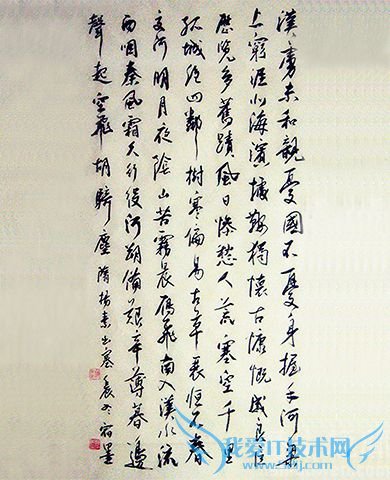 漢虜未和親憂國不憂身握手河梁
上窮涯北海濱據鞍獨懷古慷慨感良臣
歷覽多舊蹟風日慘愁人荒塞空千里
孤城絕四鄰樹寒偏易古草衰恒不春
交河明月夜陰山苦霧晨雁飛南入漢水流
西咽秦風霜久行役河朔備艱辛薄暮邊
聲起空飛胡騎塵 隋楊素出塞 宿墨
我爱IT技术网